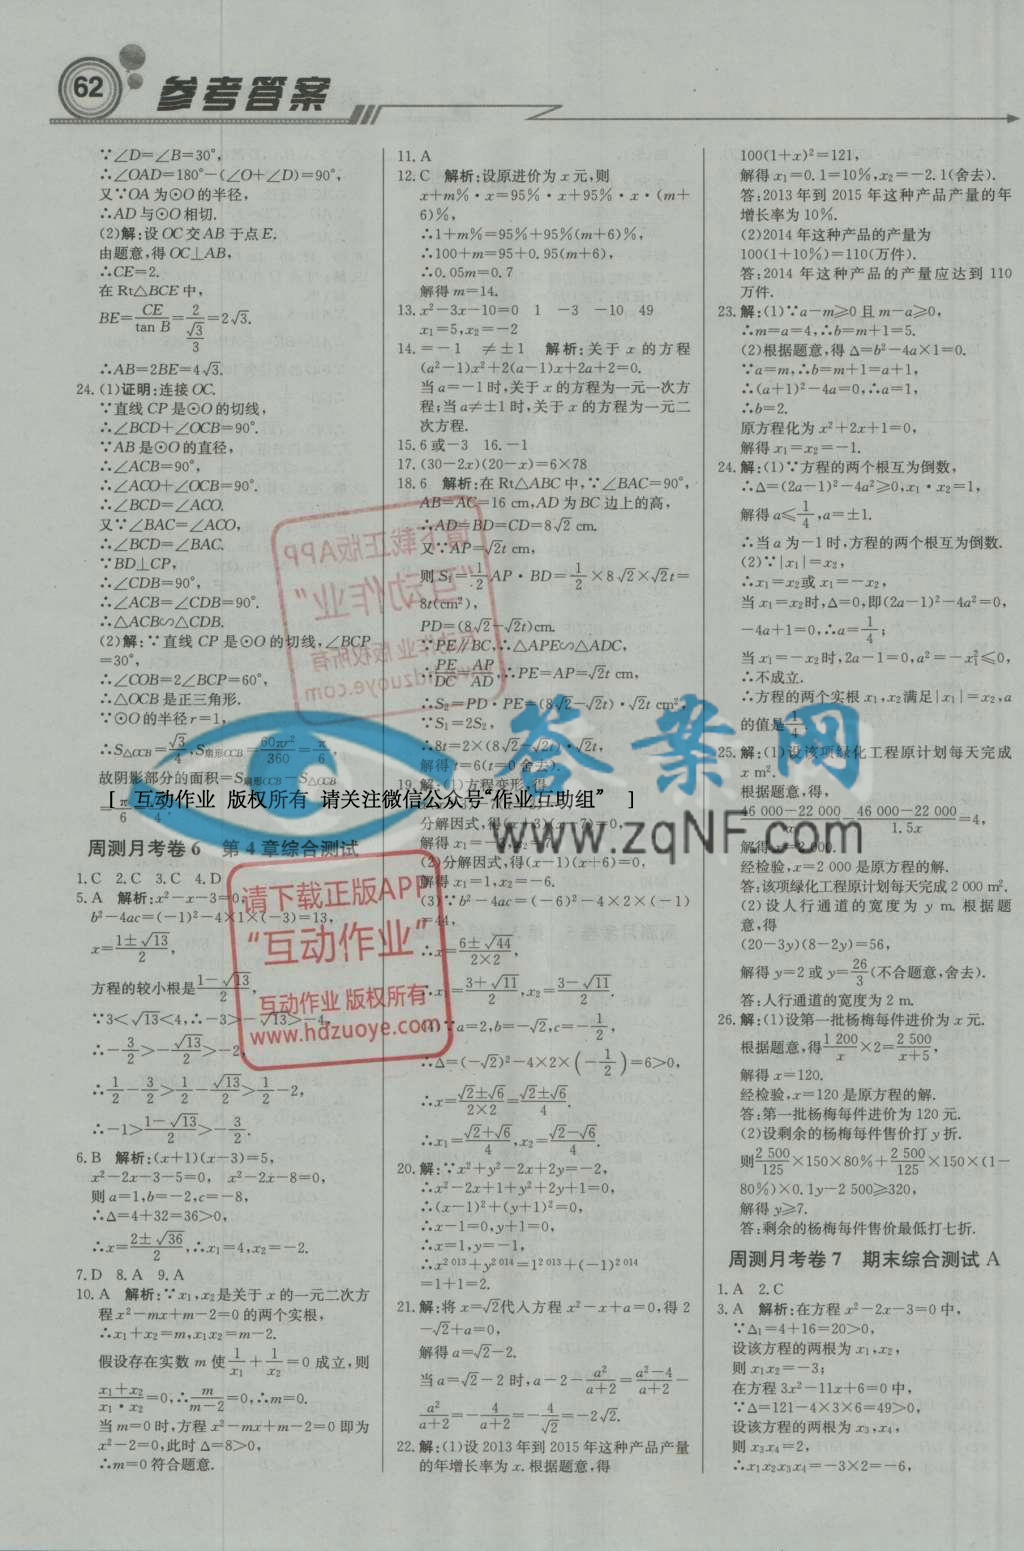 62 参考答案
∵∠D=∠B=30°,
∴∠OAD=180°-(∠O+∠D)=90°,
又∵OA为⊙O的半径,
∴AD与⊙O相切.
(2)解:设OC交AB于点E.
由题意,得OC⊥AB,
∴CE=2.
在Rt△BCE中,
BE=CE/tan B=2/(√3/3)=2√3.
∴AB=2BE=4√3.
24.(1)证明:连接OC.
∵直线CP是⊙O的切线,
∴∠BCD+∠OCB=90°.
∵AB是⊙O的直径,
∴∠ACB=90°,
∴∠ACO+∠OCB=90°.
∴∠BCD=∠ACO.
又∵∠BAC=∠ACO,
∴∠BCD=∠BAC.
∵BD⊥CP,
∴∠CDB=90°,
∴∠ACB=∠CDB=90°.
∴△ACB∽△CDB.
(2)解:∵直线CP是⊙O的切线,∠BCP
=30°,
∴∠COB=2∠BCP=60°,
∴△OCB是正三角形.
∵⊙O的半径r=1,
∴S△OCB=√3/4,S扇形OCB=60πr²/360=π/6,
故阴影部分的面积=S扇形OCB-S△OCB
[ 互动作业 版权所有 请关注微信公众号"作业互助组" ]
周测月考卷6 第4章综合测试
1.C 2.C 3.C 4.D
5.A 解析:x²-x-3=0,
b²-4ac=(-1)²-4×1×(-3)=13,
x=(1±√13)/2,
方程的较小根是(1-√13)/2,
∵3<√13<4,∴-3>-√13>-4,
∴-3/2>-√13/2>-2,
∴1/2-3/2>1/2-√13/2>1/2-2,
∴-1>(1-√13)/2>-3/2.
6.B 解析:(x+1)(x-3)=5,
x²-2x-3-5=0, x²-2x-8=0,
则a=1,b=-2,c=-8,
∴Δ=4+32=36>0,
∴x=(2±√36)/2,∴x₁=4,x₂=-2.
7.D 8.A 9.A
10.A 解析:∵x₁,x₂是关于x的一元二次方
程x²-mx+m-2=0的两个实根,
∴x₁+x₂=m,x₁x₂=m-2.
假设存在实数m使1/x₁+1/x₂=0成立,则
(x₁+x₂)/(x₁·x₂)=0,∴m/(m-2)=0,∴m=0.
当m=0时,方程x²-mx+m-2=0即为
x²-2=0,此时Δ=8>0,
∴m=0符合题意.
11.A
12.C 解析:设原进价为x元,则
x+m%·x=95%·x+95%·x·(m+
6)%,
∴1+m%=95%+95%(m+6)%,
∴100+m=95+0.95(m+6),
∴0.05m=0.7
解得m=14.
13.x²-3x-10=0 1 -3 -10 49
x₁=5,x₂=-2
14.=-1 ≠±1 解析:关于x的方程
(a²-1)x²+2(a-1)x+2a+2=0.
当a=-1时,关于x的方程为一元一次方
程;当a≠±1时,关于x的方程为一元二
次方程.
15.6或-3 16.-1
17.(30-2x)(20-x)=6×78
18.6 解析:在Rt△ABC中,∵∠BAC=90°,
AB=AC=16 cm,AD为BC边上的高,
∴AD=BD=CD=8√2 cm.
又∵AP=√2t cm,
则S₁=1/2AP·BD=1/2×8√2×√2t=
8t(cm²),
PD=(8√2-√2t)cm.
∵PE∥BC,∴△APE∽△ADC,
∴PE/DC=AP/AD,∴PE=AP=√2t cm,
∴S₂=PD·PE=(8√2-√2t)·√2t cm²,
∵S₁=2S₂,
∴8t=2×(8√2-√2t)·√2t,
解得t=6(t=0舍去).
19.解:(1)方程变形,得
分解因式,得(x+3)(x-7)=0,
(2)分解因式,得(x-1)(x+6)=0,
解得x₁=1,x₂=-6.
(3)∵b²-4ac=(-6)²-4×2×(-1)
=44,
∴x=(6±√44)/(2×2),
∴x₁=(3+√11)/2,x₂=(3-√11)/2.
(4)∵a=2,b=-√2,c=-1/2,
∴Δ=(-√2)²-4×2×(-1/2)=6>0,
∴x=(√2±√6)/(2×2)=(√2±√6)/4.
∴x₁=(√2+√6)/4,x₂=(√2-√6)/4.
20.解:∵x²+y²-2x+2y=-2,
∴x²-2x+1+y²+2y+1=0,
∴(x-1)²+(y+1)²=0,
∴x-1=0,y+1=0,
∴x=1,y=-1,
∴x²⁰¹³+y²⁰¹⁴=1²⁰¹³+(-1)²⁰¹⁴
=1+1=2.
21.解:将x=√2代入方程x²-x+a=0,得2
-√2+a=0,
解得a=√2-2.
当a=√2-2时,a-2-a²/(a+2)=(a²-4)/(a+2)-
a²/(a+2)=-4/(a+2)=-4/√2=-2√2.
22.解:(1)设2013年到2015年这种产品产量
的年增长率为x.根据题意,得
100(1+x)²=121,
解得x₁=0.1=10%,x₂=-2.1(舍去).
答:2013年到2015年这种产品产量的年
增长率为10%.
(2)2014年这种产品的产量为
100(1+10%)=110(万件).
答:2014年这种产品的产量应达到110
万件.
23.解:(1)∵a-m≥0且m-a≥0,
∴m=a=4,∴b=m+1=5.
(2)根据题意,得Δ=b²-4a×1=0.
∵a=m,∴b=m+1=a+1,
∴(a+1)²-4a=0,∴a=1,
∴b=2.
原方程化为x²+2x+1=0,
解得x₁=x₂=-1.
24.解:(1)∵方程的两个根互为倒数,
∴Δ=(2a-1)²-4a²≥0,x₁·x₂=1,
解得a≤1/4,a=±1.
∴当a为-1时,方程的两个根互为倒数.
(2)∵|x₁|=x₂,
∴x₁=x₂或x₁=-x₂,
当x₁=x₂时,Δ=0,即(2a-1)²-4a²=0,
-4a+1=0,∴a=1/4;
当x₁=-x₂时,2a-1=0,a²=-x₁²≤0,
∴不成立.
∴方程的两个实根x₁,x₂满足|x₁|=x₂,a
的值是1/4.
25.解:(1)设该项绿化工程原计划每天完成
x m².
根据题意,得
(46 000-22 000)/x-(46 000-22 000)/1.5x=4,
解得x=2 000.
经检验,x=2 000是原方程的解.
答:该项绿化工程原计划每天完成2 000 m².
(2)设人行通道的宽度为y m.根据题
意,得
(20-3y)(8-2y)=56,
解得y=2或y=26/3(不合题意,舍去).
答:人行通道的宽度为2 m.
26.解:(1)设第一批杨梅每件进价为x元.
根据题意,得1 200/x×2=2 500/(x+5),
解得x=120.
经检验,x=120是原方程的解.
答:第一批杨梅每件进价为120元.
(2)设剩余的杨梅每件售价打y折.
则2 500/125×150×80%+2 500/125×150×(1-
80%)×0.1y-2 500≥320,
解得y≥7.
答:剩余的杨梅每件售价最低打七折.
周测月考卷7 期末综合测试A
1.A 2.C
3.A 解析:在方程x²-2x-3=0中,
∵Δ₁=4+16=20>0,
设该方程的两根为x₁,x₂,
则x₁x₂=-3;
在方程3x²-11x+6=0中,
∵Δ=121-4×3×6=49>0,
设该方程的两根为x₃,x₄,
则x₃x₄=2,
∴x₁x₂x₃x₄=-3×2=-6,
请下载正版APP
"互动作业"
互动作业 版权所有
www.hdzuoye.com
答案网
www.zqNF.com